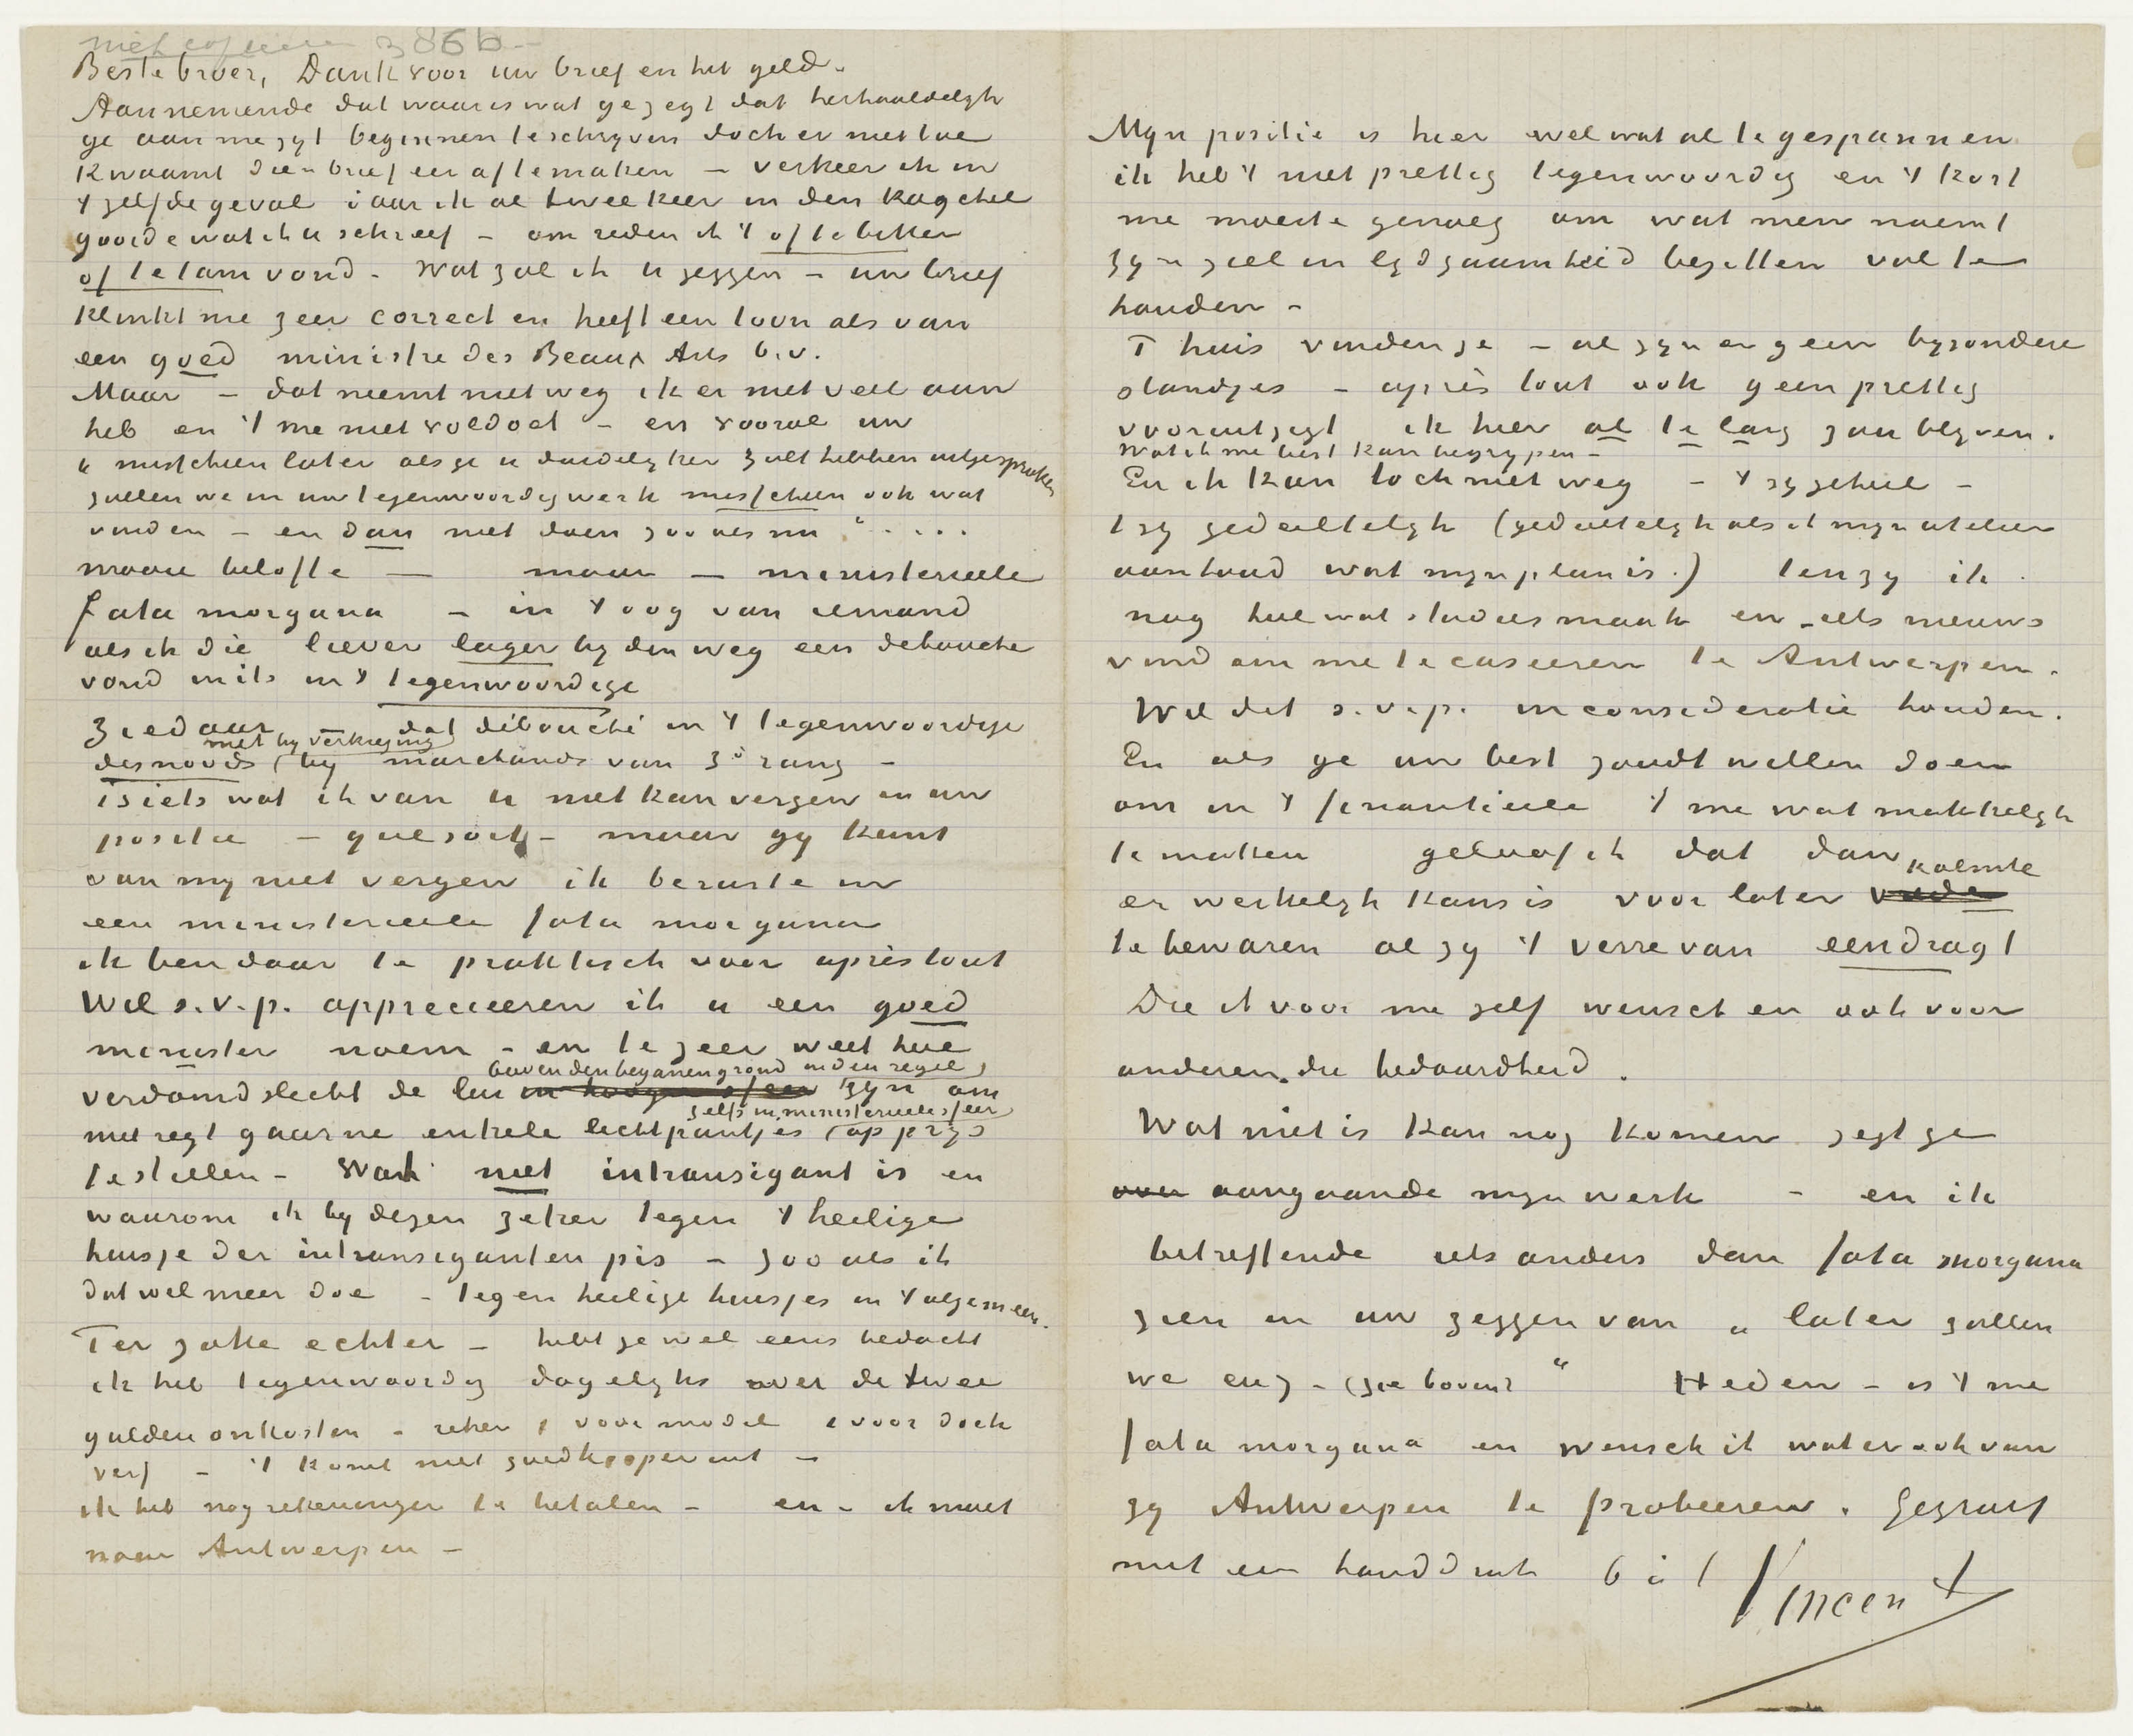 386b
Beste broer, Dank voor uw brief en het geld.
Aannemende dat waar is wat ge zegt dat herhaaldelyk
ge aan me zyt beginnen te schryven doch er niet toe
kwaamt dien brief eer af te maken – verkeer ik in
't zelfde geval daar ik al twee keer in den kagchel
gooide wat ik u schreef – om reden ik 't of te bitter
of te tam vond. Wat zal ik u zeggen – uw brief
klinkt me zeer correct en heeft een toon als van
een goed ministre des Beaux Arts b.v.
Maar – dat neemt niet weg ik er niet veel aan
heb en 't me niet voldoet – en vooral uw
„misschien later als ge u duidelyker zult hebben uitgesproken
zullen we in uw tegenwoordig werk misschien ook wat
vinden – en dan niet doen zoo als nu“ ....
mooie belofte — maar — ministerieele
fata morgana – in 't oog van iemand
als ik die liever lager by den weg een debouché
vond mits in 't tegenwoordige
Ziedaar – dat débouché in 't tegenwoordige
met by verkryging
desnoods (by marchands van 3e rang –
is iets wat ik van u niet kan vergen in uw
positie – que soit – maar gy kunt
van my niet vergen ik beruste in
een ministerieele fata morgana
ik ben daar te praktisch voor après tout
Wil s.v.p. apprecieeren ik u een goed
minister noem – en te zeer weet hoe
boven den beganen grond in den regel)
verdomd slecht de lui in hoogere sfeer zyn om
zelfs in ministerieele sfeer)
niet regt gaarne enkele lichtpuntjes (op prys
te stellen – Wat niet intransigant is en
waarom ik by dezen zeker tegen 't heilige
huisje der intransiganten pis – zoo als ik
dat wel meer doe – tegen heilige huisjes in 't algemeen.
Ter zake echter – hebt ge wel eens bedacht
ik heb tegenwoordig dagelyks over de twee
gulden onkosten – reken 1 voor model 1 voor doek
verf – 't komt niet goedkooper uit –
ik heb nog rekeningen te betalen – en – ik moet
naar Antwerpen –
Myn positie is hier wel wat al te gespannen
ik heb 't niet prettig tegenwoordig en 't kost
me moeite genoeg om wat men noemt
zyn ziel in lydzaamheid bezitten vol te
houden –
T huis vinden ze – al zyn er geen byzondere
standjes – après tout ook geen prettig
vooruitzigt ik hier al te lang zou blyven.
Wat ik me best kan begrypen –
En ik kan toch niet weg – 't zy geheel –
t zy gedeeltelyk (gedeeltelyk als ik myn atelier
aanhoud wat myn plan is.) tenzy ik
nog heel wat studies maak en iets nieuws
vind om me te caseeren te Antwerpen.
Wil dit s.v.p. in consideratie houden.
En als ge uw best zoudt willen doen
om in 't finantieele 't me wat makkelyk
te maken geloof ik dat dan
kalmte
er werkelyk kans is voor later vrede
te bewaren al zy 't verre van eendragt
Die ik voor me zelf wensch en ook voor
anderen, die bedaardheid.
Wat niet is kan nog komen zegt ge
over aangaande myn werk – en ik
betreffende iets anders dan fata morgana
zien in uw zeggen van „later zullen
we enz – (zie boven)“ Heden – is 't me
fata morgana en wensch ik wat er ook van
zy Antwerpen te probeeren. Gegroet
met een handdruk b à t Vincent